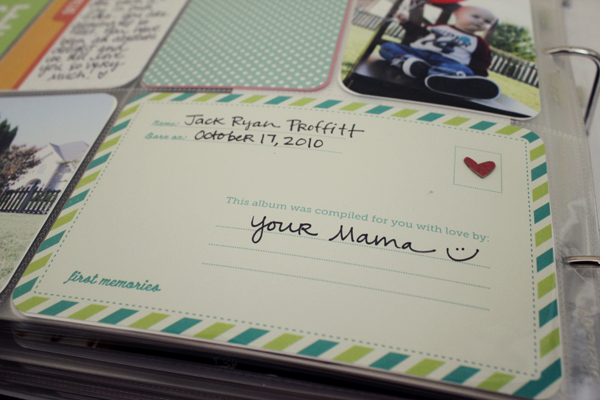 name: Jack Ryan Proffitt
Born on: October 17, 2010
This album was compiled for you with love by:
your Mama
first memories
you so very
much!